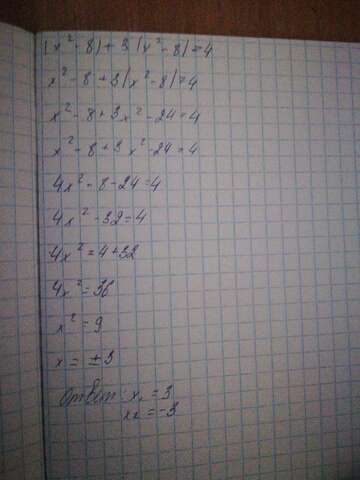 (x² - 8) + 3 (x² - 8) = 4
x² - 8 + 3(x² - 8) = 4
x² - 8 + 3x² - 24 = 4
x² - 8 + 3x² - 24 = 4
4x² - 8 - 24 = 4
4x² - 32 = 4
4x² = 4 + 32
4x² = 36
x² = 9
x = ± 3
Ответ: x₁ = 3
x₂ = -3